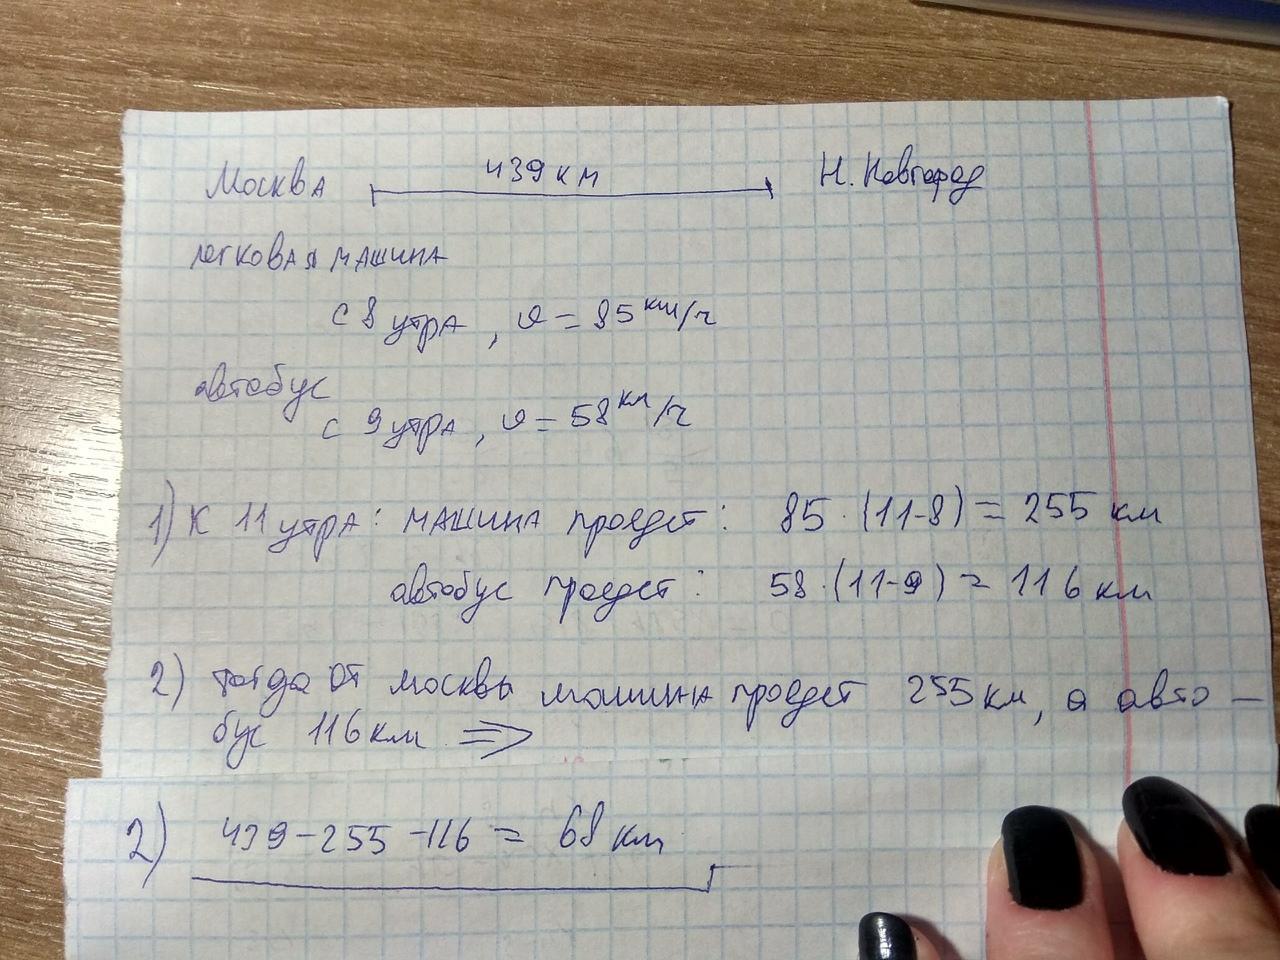 Москва 439 км Н. Новгород
легковая машина
с 8 утра, v = 85 км/ч
автобус
с 9 утра, v = 58 км/ч
1) К 11 утра: машина проедет: 85·(11-8) = 255 км
автобус проедет: 58·(11-9) = 116 км
2) тогда от москвы машина проедет 255 км, а авто-
бус 116 км ⇒
2) 439-255-116 = 68 км